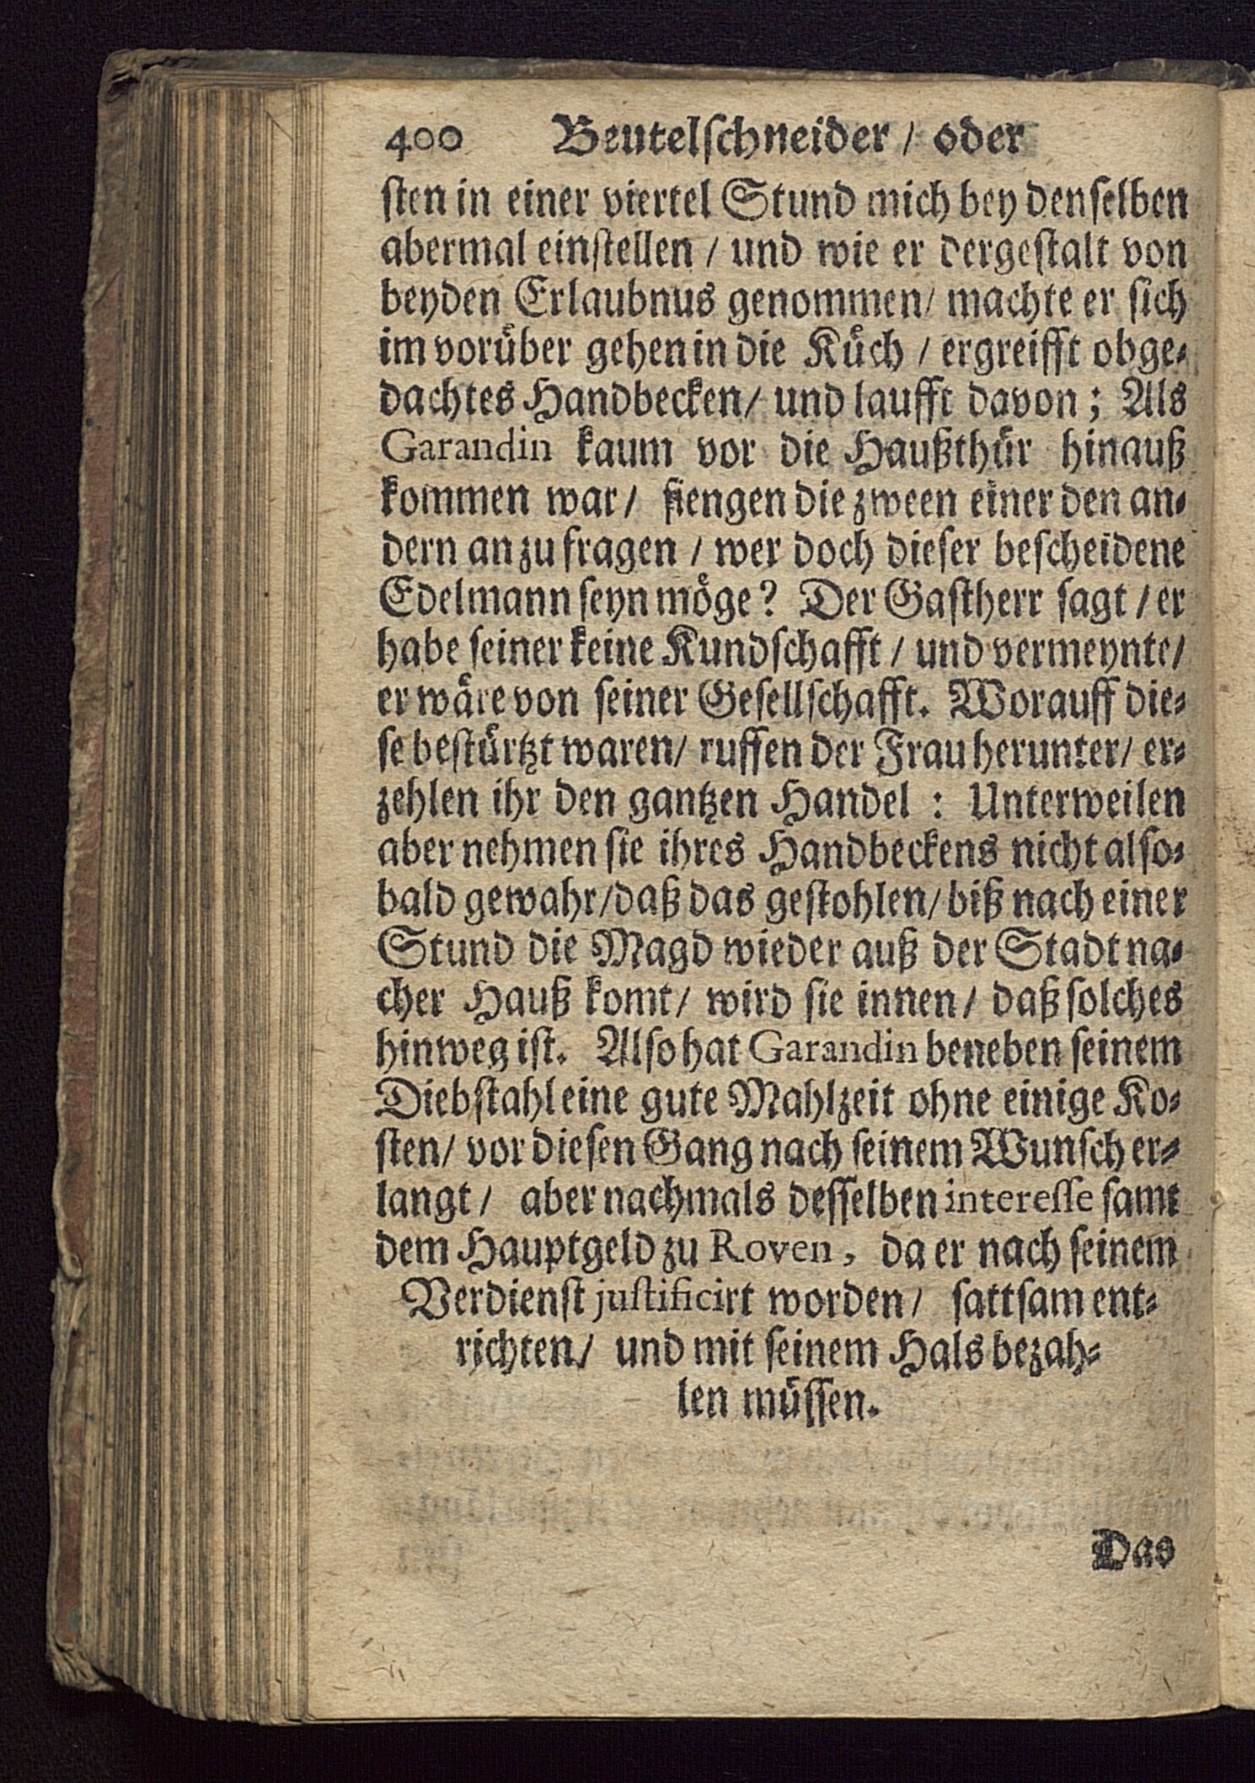 400 Beutelschneider / oder
sten in einer viertel Stund mich bey denselben
abermal einstellen / und wie er dergestalt von
beyden Erlaubnus genommen / machte er sich
im vorüber gehen in die Küch / ergreifft obge-
dachtes Handbecken / und laufft davon ; Als
Garandin kaum vor die Haußthür hinauß
kommen war / fiengen die zween einer den an-
dern an zu fragen / wer doch dieser bescheidene
Edelmann seyn möge ? Der Gastherr sagt / er
habe seiner keine Kundschafft / und vermeynte /
er wäre von seiner Gesellschafft. Worauff die-
se bestürtzt waren / ruffen der Frau herunter / er-
zehlen ihr den gantzen Handel : Unterweilen
aber nehmen sie ihres Handbeckens nicht also-
bald gewahr / daß das gestohlen / biß nach einer
Stund die Magd wieder auß der Stadt na-
cher Hauß komt / wird sie innen / daß solches
hinweg ist. Also hat Garandin beneben seinem
Diebstahl eine gute Mahlzeit ohne einige Ko-
sten / vor diesen Gang nach seinem Wunsch er-
langt / aber nachmals desselben interesse samt
dem Hauptgeld zu Roven, da er nach seinem
Verdienst justificirt worden / sattsam ent-
richten / und mit seinem Hals bezah-
len müssen.
Das